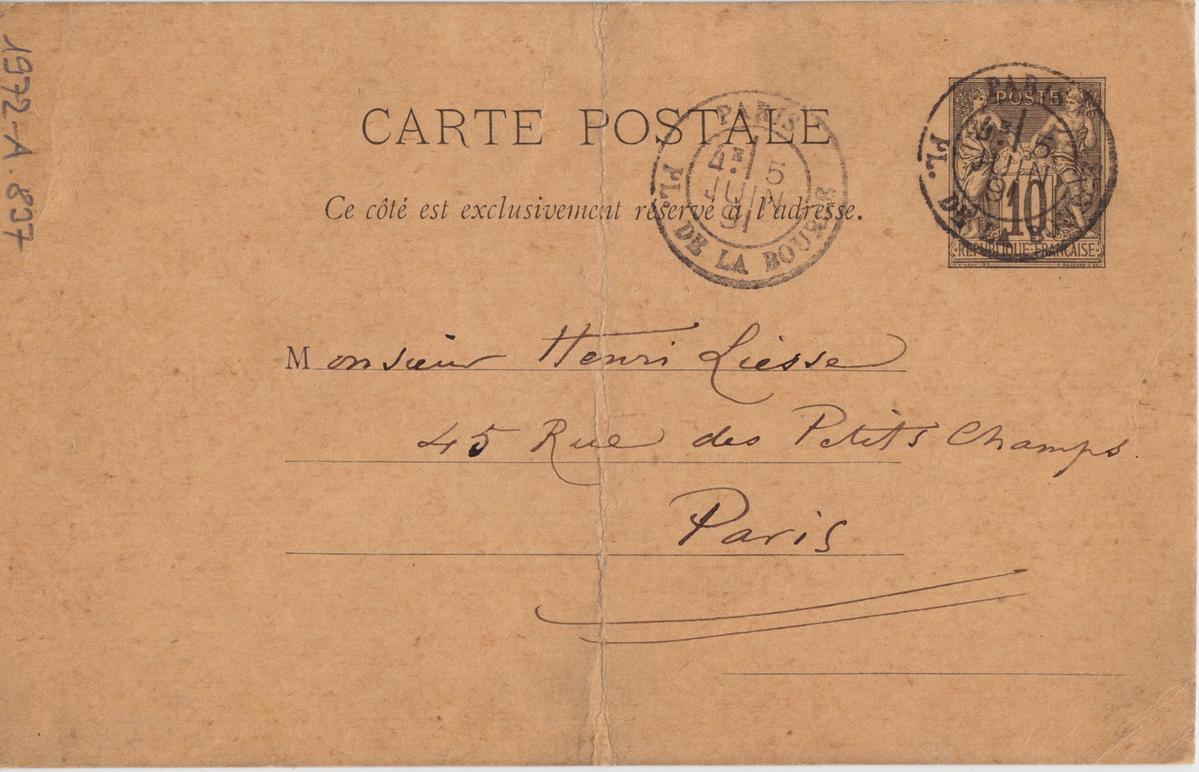 1972-A.837
CARTE POSTALE
Ce côté est exclusivement réservé à l'adresse.
PARIS
5
JUIN
91
PL. DE LA BOURSE
POSTE
10
REPUBLIQUE FRANÇAISE
PARIS
5
JUIN
91
PL. DE LA BOURSE
Monsieur Henri Liesse
45 Rue des Petits Champs.
Paris